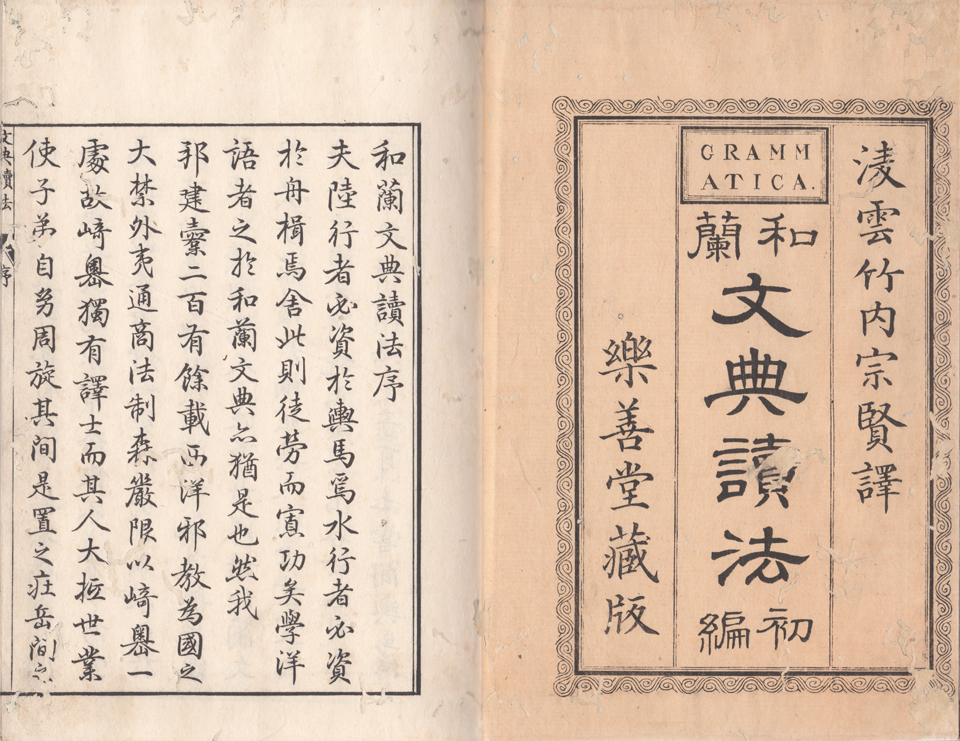 淩雲竹内宗賢譯
GRAMM
ATICA.
和蘭
文典讀法
初編
樂善堂藏版
和蘭文典讀法序
夫陸行者必資於輿馬焉水行者必資
於舟楫焉舍此則徒勞而寡功矣學洋
語者之於和蘭文典亦猶是也然我
邦建櫜二百有餘載西洋邪教為國之
大禁外夷通商法制森嚴限以崎嶴一
處故崎嶴獨有譯士而其人大抵世業
使子弟自幼周旋其間是置之莊岳間亦
文典讀法
序